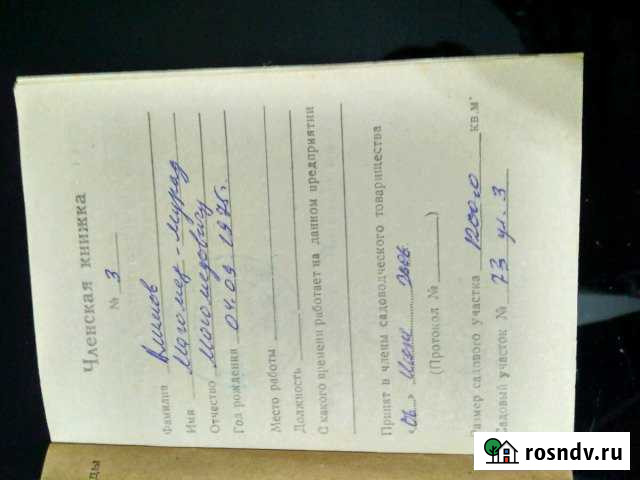 Членская книжка
№ 3
Фамилия
Имя Магомед-Мурад
Отчество Магомедович
Год рождения 04.09.1976г.
Место работы
Должность
С какого времени работает на данном предприятии
Принят в члены садоводческого товарищества
«06» 2006
(Протокол № )
Размер садового участка кв.м
Садовый участок № 73 ул. 3
ДЫ
rosndv.ru